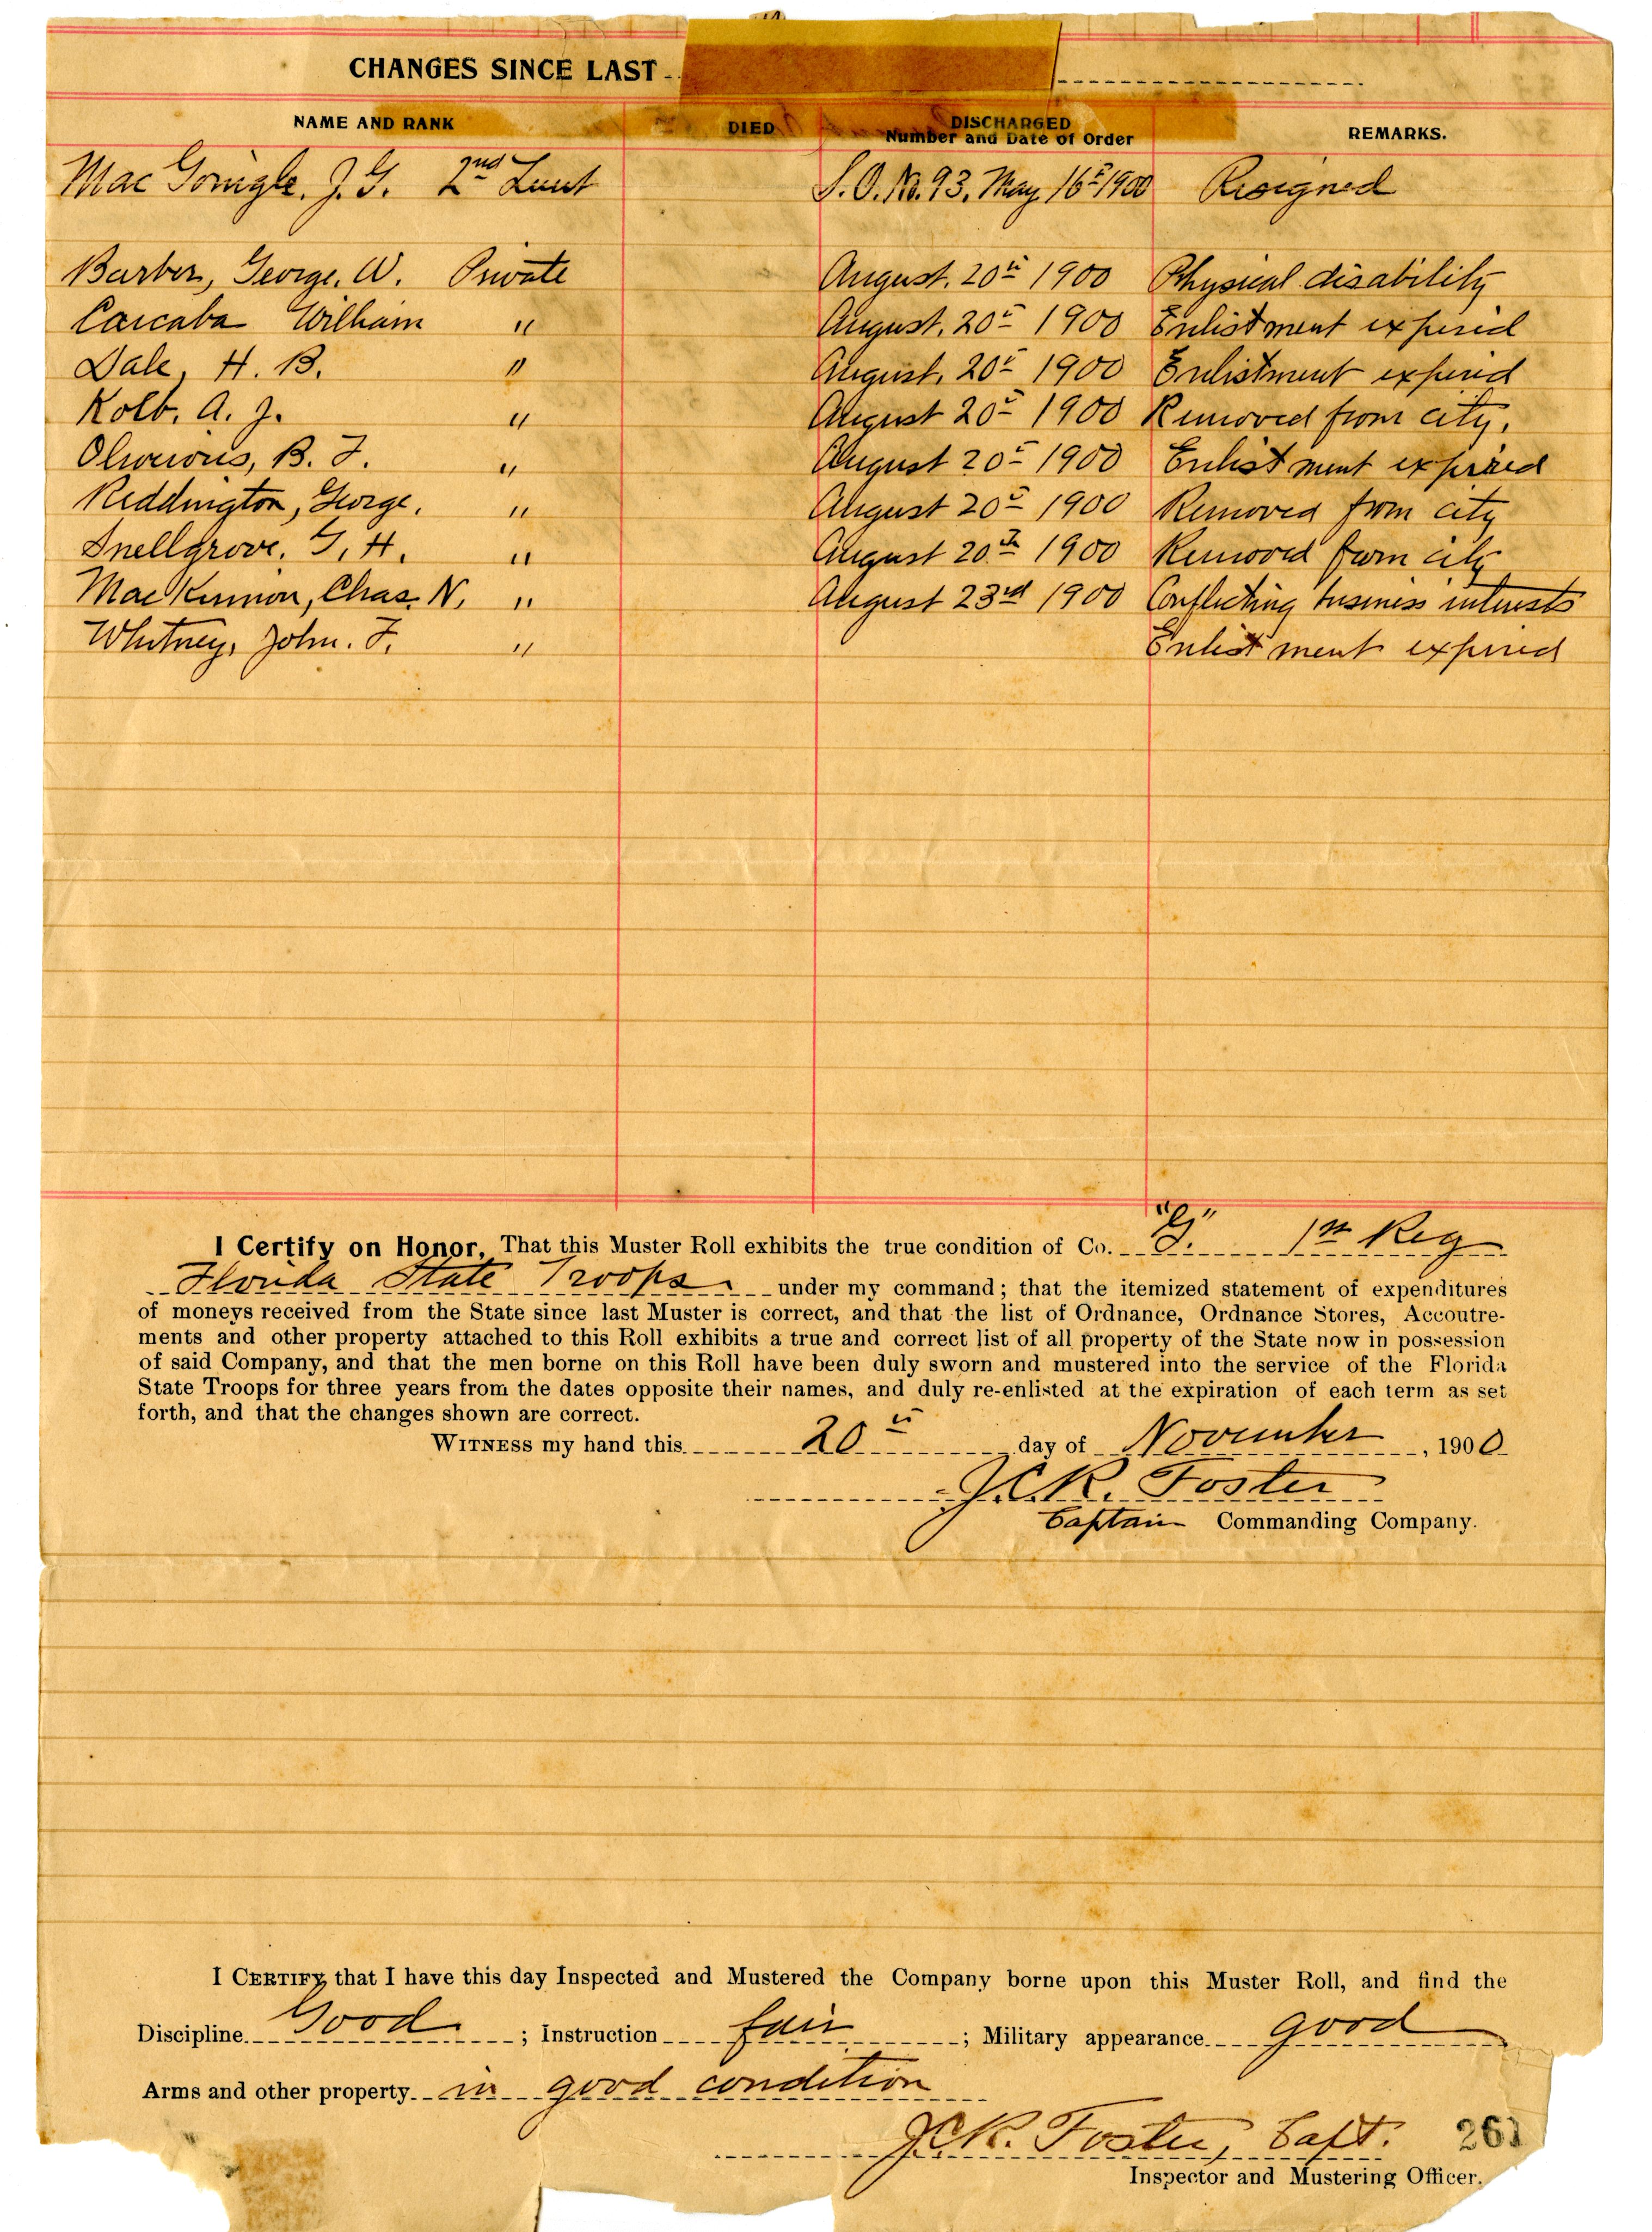 CHANGES SINCE LAST
NAME AND RANK DIED DISCHARGED Number and Date of Order REMARKS.
Mac Gonigle, J. G. 2nd Lieut S. O. No. 93, May 16th 1900 Resigned
Barber, George. W. Private August. 20th 1900 Physical disability
Carcaba William " August. 20th 1900 Enlistment expired
Dale, H. B. " August, 20th 1900 Enlistment expired
Kolb, A. J. " August 20th 1900 Removed from city.
B. F. " August 20th 1900 Enlistment expired
Reddington, George. " August 20th 1900 Removed from city
Snellgrove, G. H. " August 20th 1900 Removed from city
MacKinnon, Chas. N. " August 23rd 1900 Conflicting business interests
Whitney, John. F. " Enlistment expired
I Certify on Honor, That this Muster Roll exhibits the true condition of Co. "G." 1st Reg
Florida State Troops under my command; that the itemized statement of expenditures
of moneys received from the State since last Muster is correct, and that the list of Ordnance, Ordnance Stores, Accoutre-
ments and other property attached to this Roll exhibits a true and correct list of all property of the State now in possession
of said Company, and that the men borne on this Roll have been duly sworn and mustered into the service of the Florida
State Troops for three years from the dates opposite their names, and duly re-enlisted at the expiration of each term as set
forth, and that the changes shown are correct.
WITNESS my hand this 20th day of November, 1900
J. C. R. Foster
Captain Commanding Company.
I CERTIFY that I have this day Inspected and Mustered the Company borne upon this Muster Roll, and find the
Discipline Good; Instruction fair; Military appearance good
Arms and other property in good condition
J. C. R. Foster, Capt. 261
Inspector and Mustering Officer.